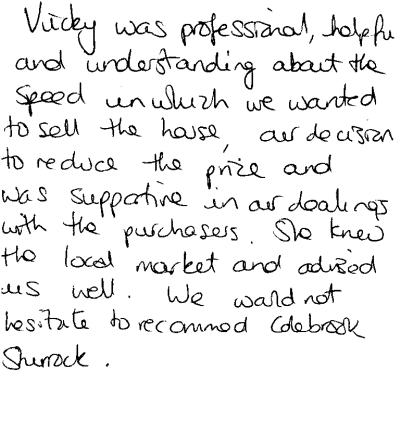 Vicky was professional, helpful
and understanding about the
speed in which we wanted
to sell the house, our decision
to reduce the price and
was supportive in our dealings
with the purchasers. She knew
the local market and advised
us well. We would not
hesitate to recommend Colebrook
Sturrock.